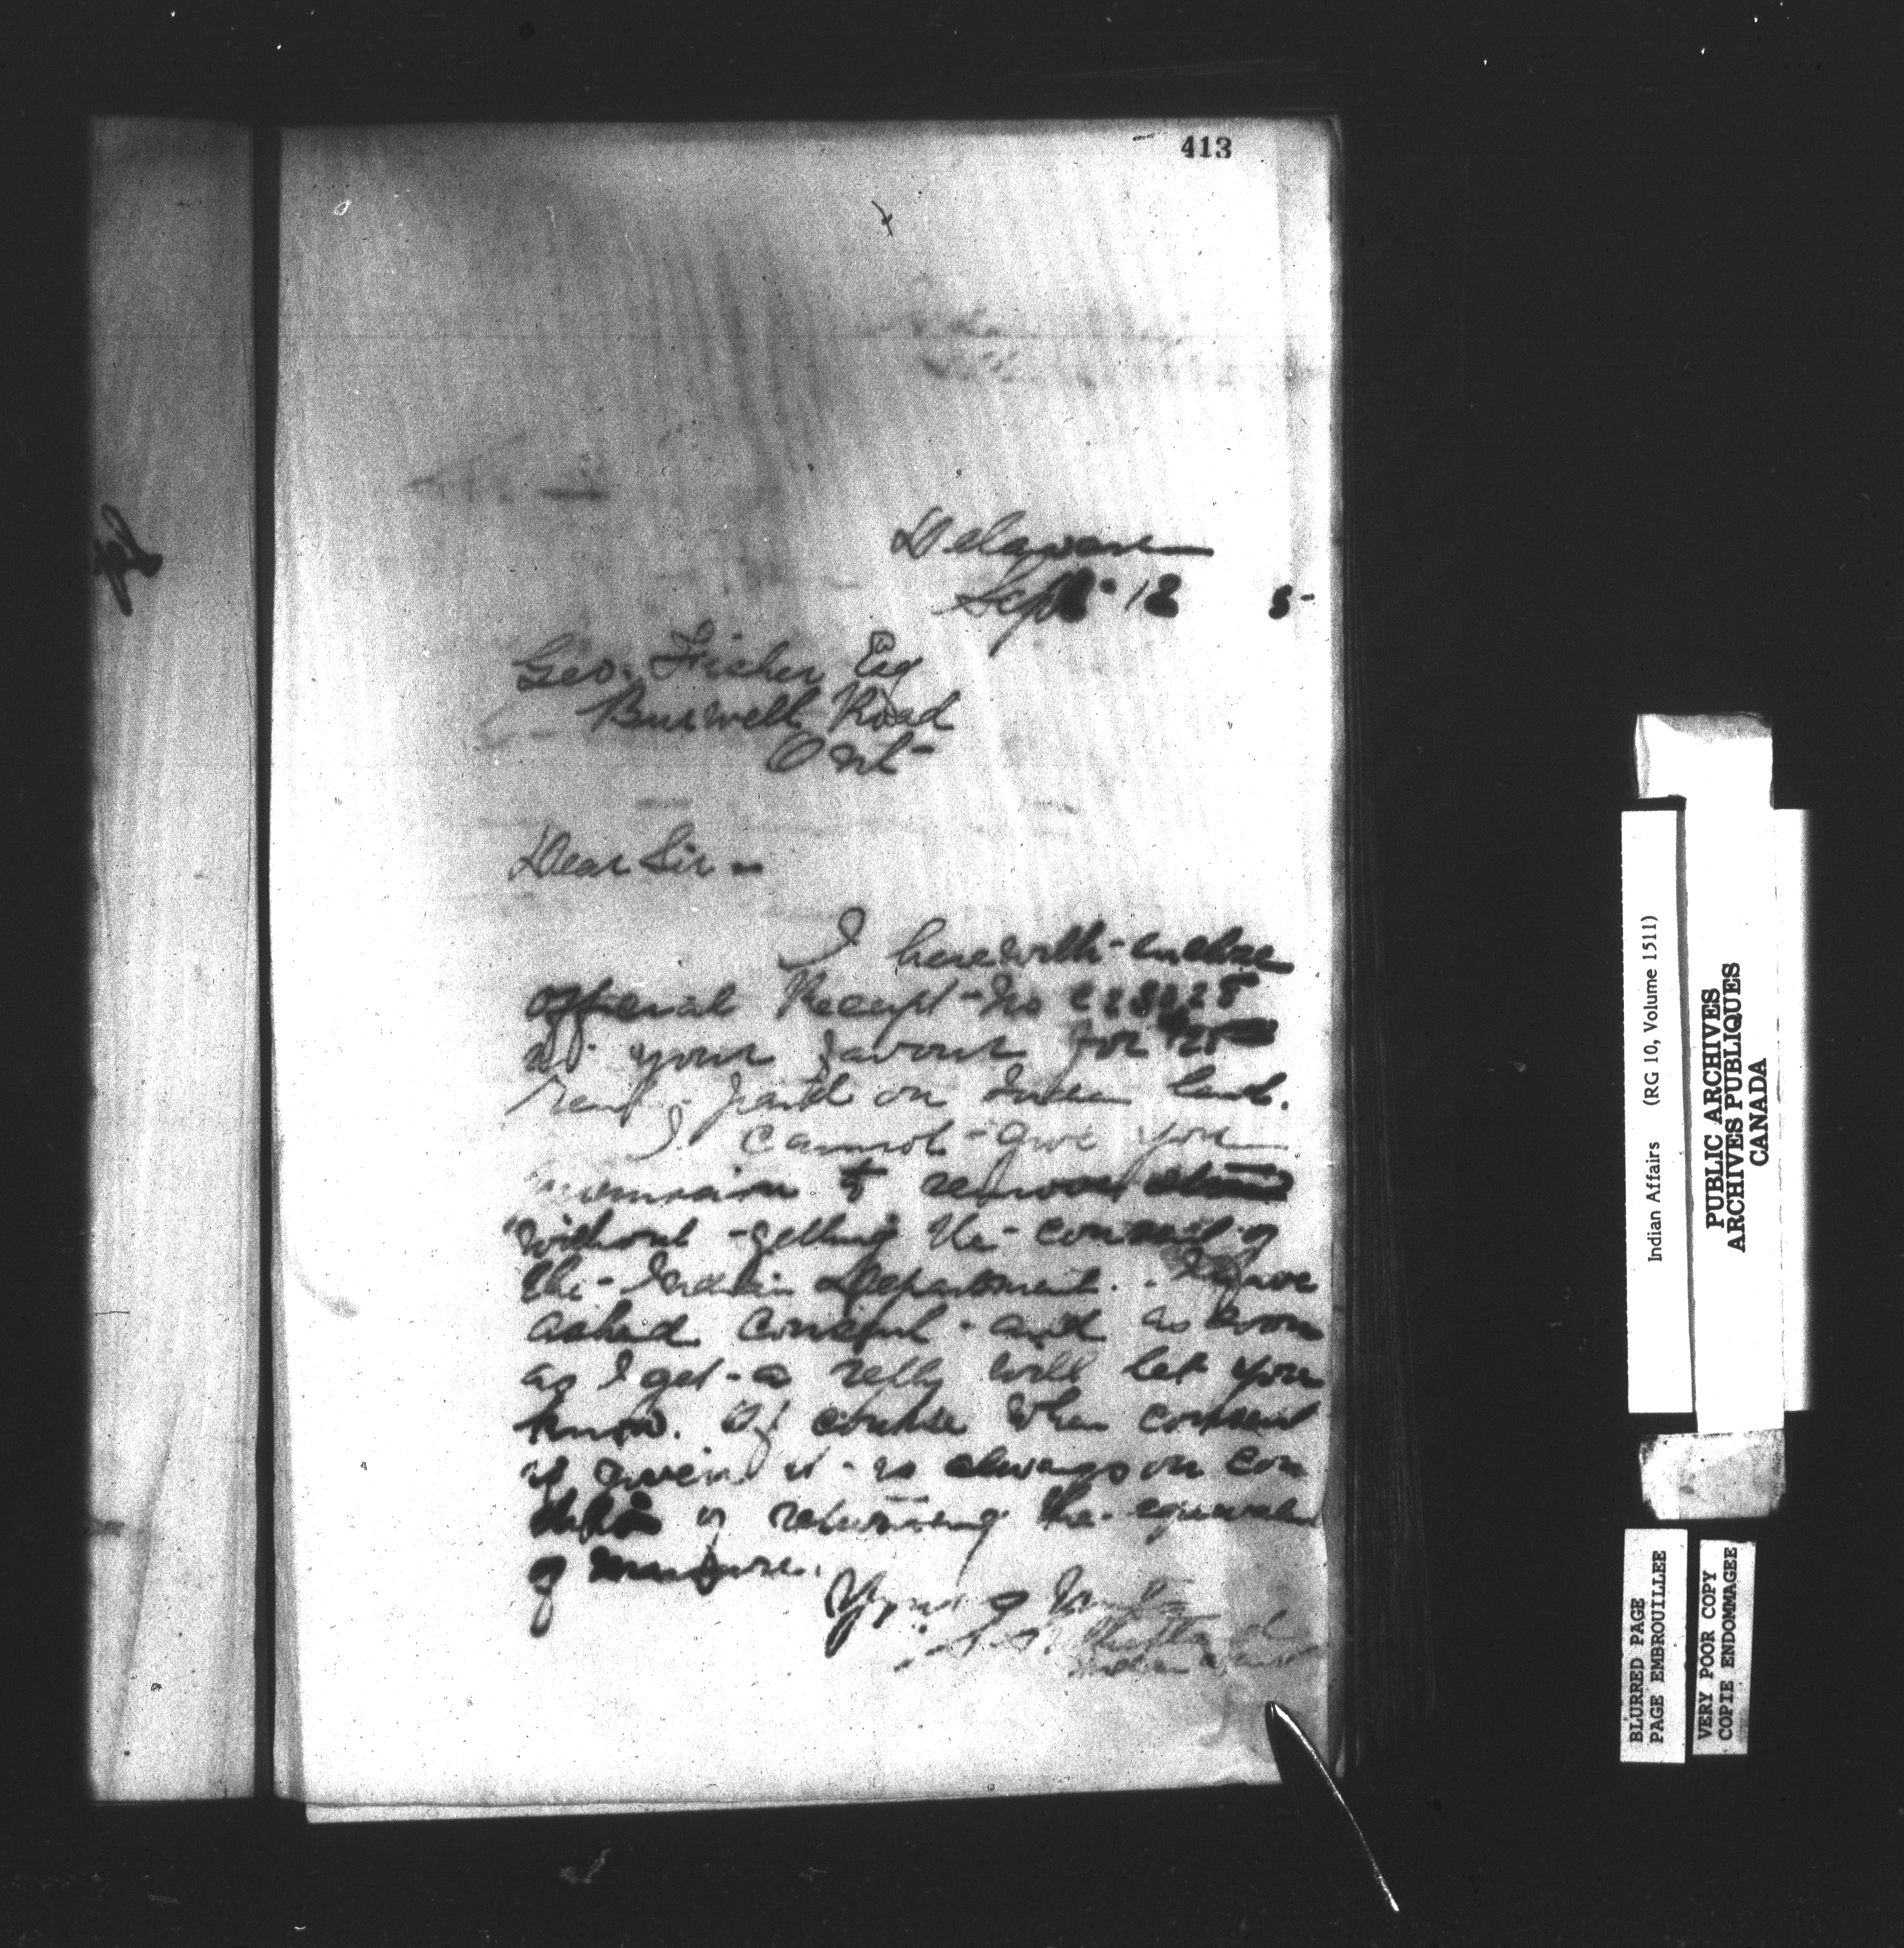 413
Delaware
Sept 12 5
Geo. Fisher Esq
Burwell Road
Ont
Dear Sir
I herewith enclose
official Receipt No
in your favour for
rent paid on Indian land.
I cannot give you
permission to remove straw
without getting the consent of
the Indian Department. I have
asked consent and as soon
as I get a reply will let you
know. Of course when consent
is given it is always on con
dition of returning the equivalent
of manure.
Yours Truly
Indian Agent
Indian Affairs (RG 10, Volume 1511)
PUBLIC ARCHIVES
ARCHIVES PUBLIQUES
CANADA
BLURRED PAGE
PAGE EMBROUILLEE
VERY POOR COPY
COPIE ENDOMMAGEE